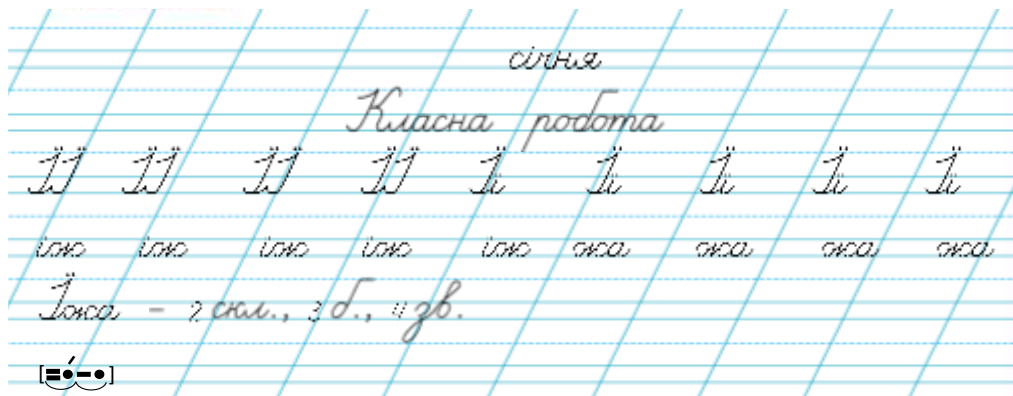 січня
Класна робота
ЇЇ ЇЇ ЇЇ ЇЇ Її Її Її Її Її
їж їж їж їж їж жа жа жа жа
Їжа – 2 скл., 3 б., 4 зв.
[=●́–●]